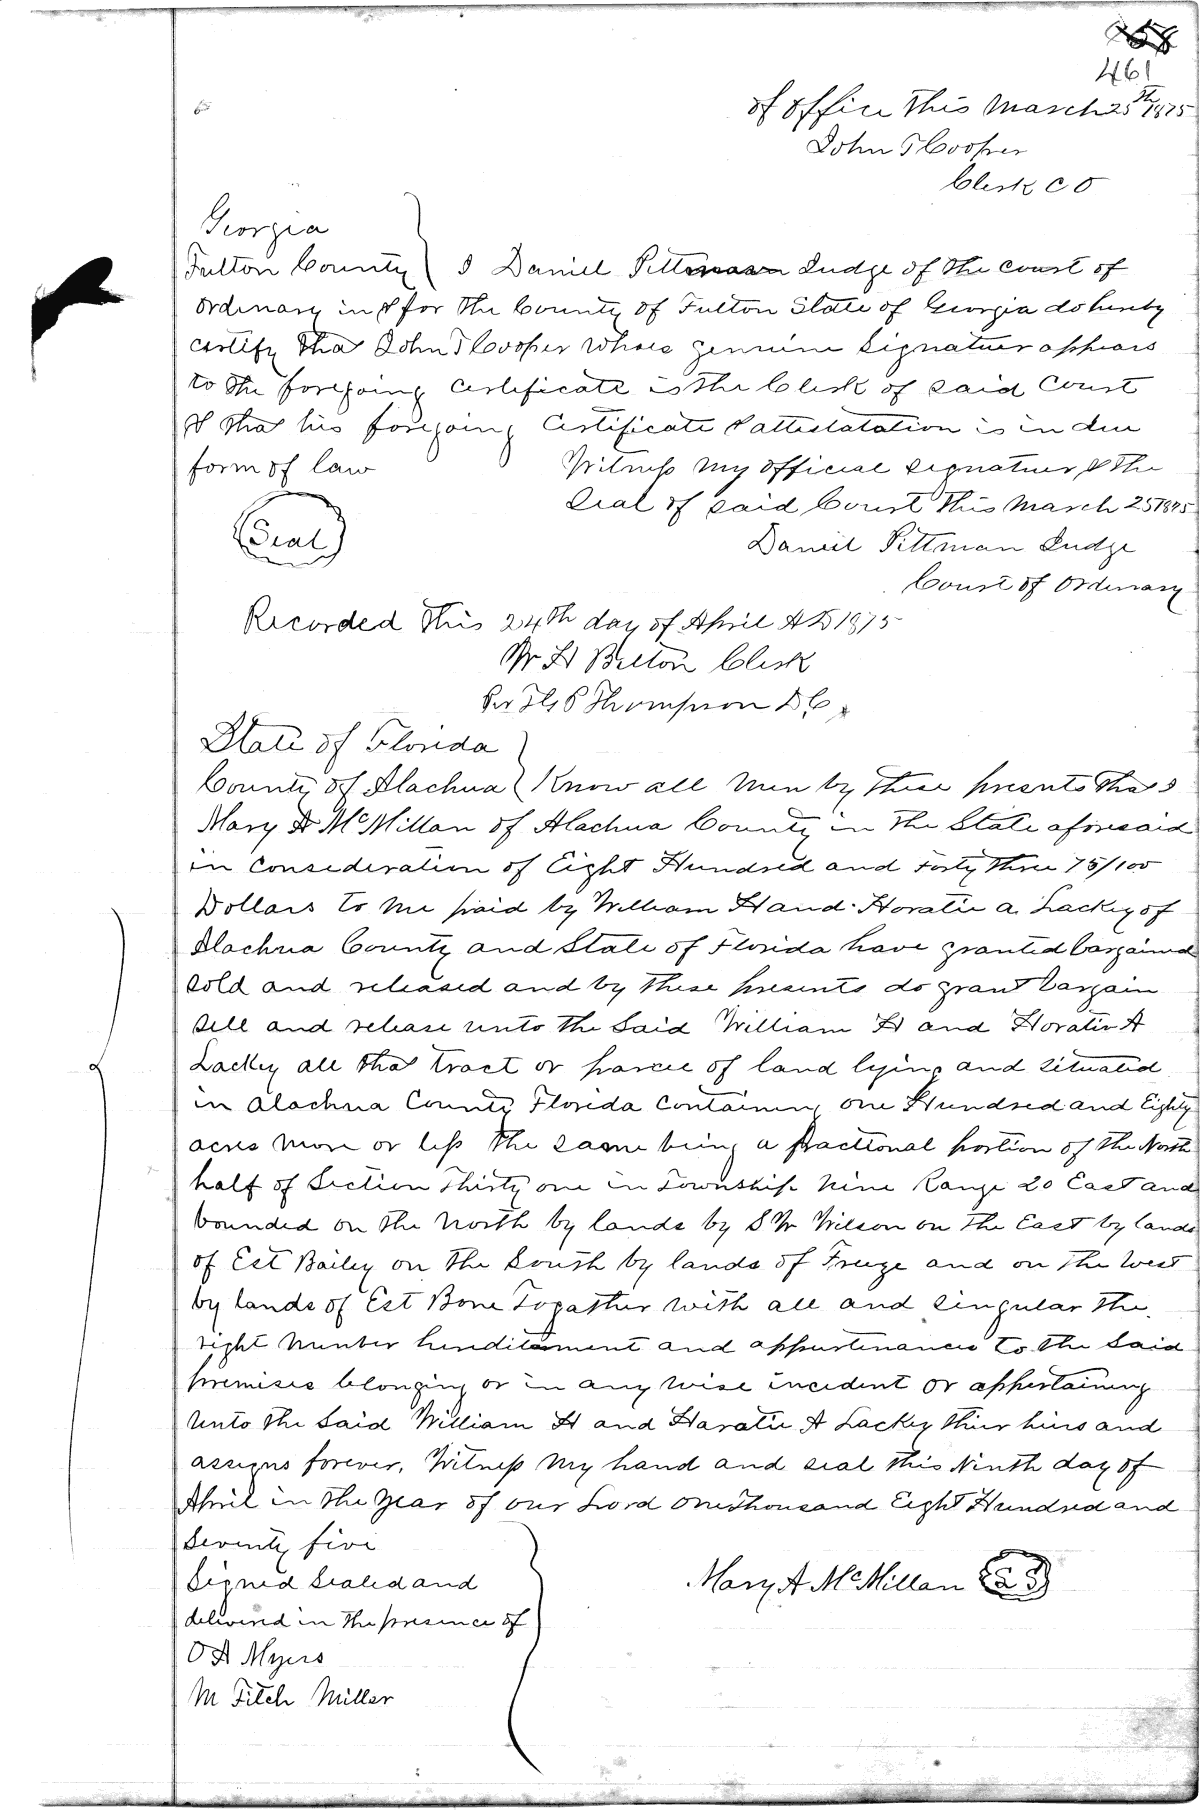 461
of office this March 25th 1875
John T Cooper
Clerk C O
Georgia
Fulton County I Daniel Pittman Judge of the court of
ordinary in & for the County of Fulton State of Georgia do hereby
certify that John T Cooper whose genuine signatuer appears
to the foregoing certificate is the Clerk of said Court
& that his foregoing Certificate & attestatation is in due
form of law Witness my official signatuer & the
Seal of said Court this March 25 1875
Seal
Daniel Pittman Judge
Court of Ordinary
Recorded this 24th day of April AD 1875
W H Belton Clerk
Per T G P Thompson D C
State of Florida
County of Alachua Know all Men by these presents that I
Mary A McMillan of Alachua County in the State aforesaid
in consideration of Eight Hundred and Forty three 75/100
Dollars to me paid by William H and Horatio A. Lackey of
Alachua County and State of Florida have granted bargained
sold and released and by these presents do grant bargain
sell and release unto the said William H and Horatio A
Lackey all that tract or parcel of land lying and situated
in Alachua County Florida containing one Hundred and Eighty
acres more or less the same being a fractional portion of the North
half of Section Thirty one in Township Nine Range 20 East and
bounded on the North by lands by S W Wilson on the East by lands
of Est Bailey on the South by lands of Freeze and on the West
by lands of Est Bone Togather with all and singular the
right member hereditament and appurtenances to the said
premises belonging or in any wise incident or appertaining
unto the said William H and Haratio A Lackey thier hiers and
assigns forever. Witness My hand and seal this Ninth day of
April in the year of our Lord One Thousand Eight Hundred and
Seventy five
Signed Sealed and
Mary A McMillan L S
delivered in the presence of
O A Myers
M Fitch Miller